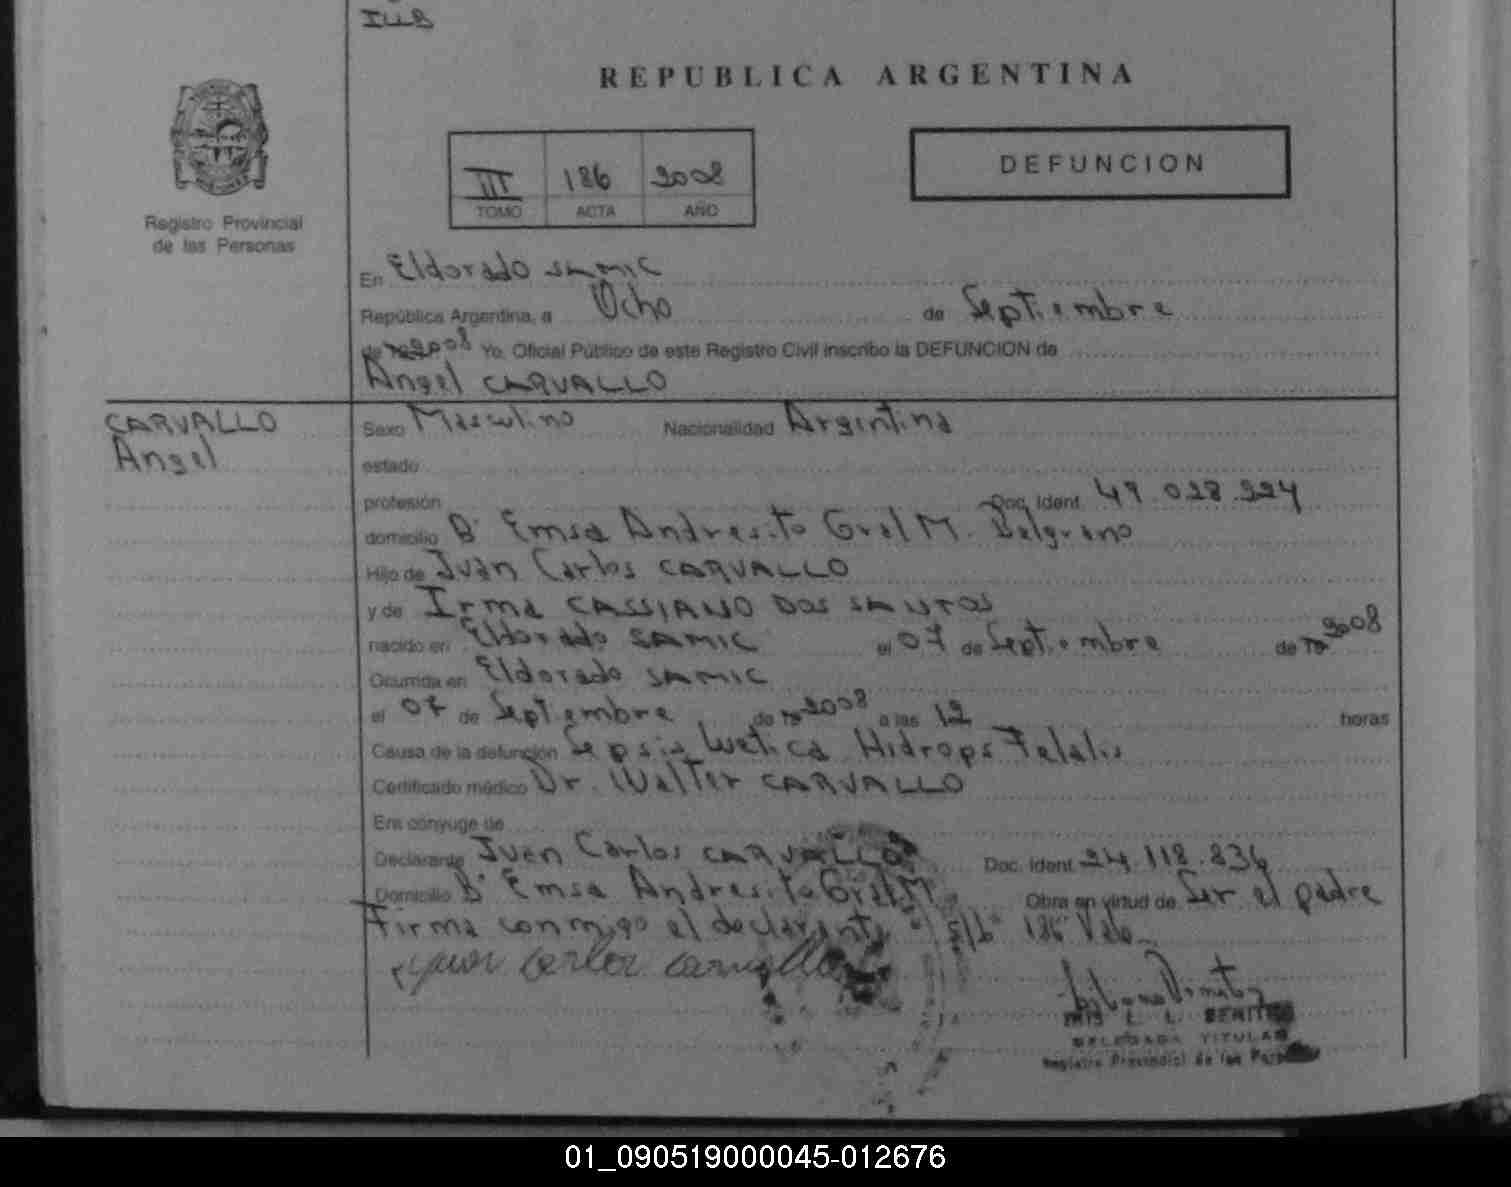 REPUBLICA ARGENTINA
DEFUNCION
III 186 2008
TOMO ACTA AÑO
Registro Provincial
de las Personas
En Eldorado SAMIC
República Argentina, a Ocho de Septiembre
de 2008 Yo, Oficial Público de este Registro Civil inscribo la DEFUNCION de
Angel CARVALLO
CARVALLO
Angel
Sexo Masculino Nacionalidad Argentina
estado
profesión Doc. Ident. 49.028.924
domicilio Bº Emsa Andresito Gral M. Belgrano
Hijo de Juan Carlos CARVALLO
y de Irma CASSIANO DOS SANTOS
nacido en Eldorado SAMIC el 07 de Septiembre de 2008
Ocurrida en Eldorado SAMIC
el 07 de Septiembre de 2008 a las 12 horas
Causa de la defunción Sepsis Luetica Hidrops Fetalis
Certificado médico Dr. Walter CARVALLO
Era cónyuge de
Declarante Juan Carlos CARVALLO Doc. Ident. 24.118.836
Domicilio Bº Emsa Andresito Gral M. Obra en virtud de Ser el padre
Firma conmigo el declarante s/b 186 Vale
Juan Carlos Carvallo
L. L. BENITEZ
DELEGADA TITULAR
Registro Provincial de las Personas
01_090519000045-012676